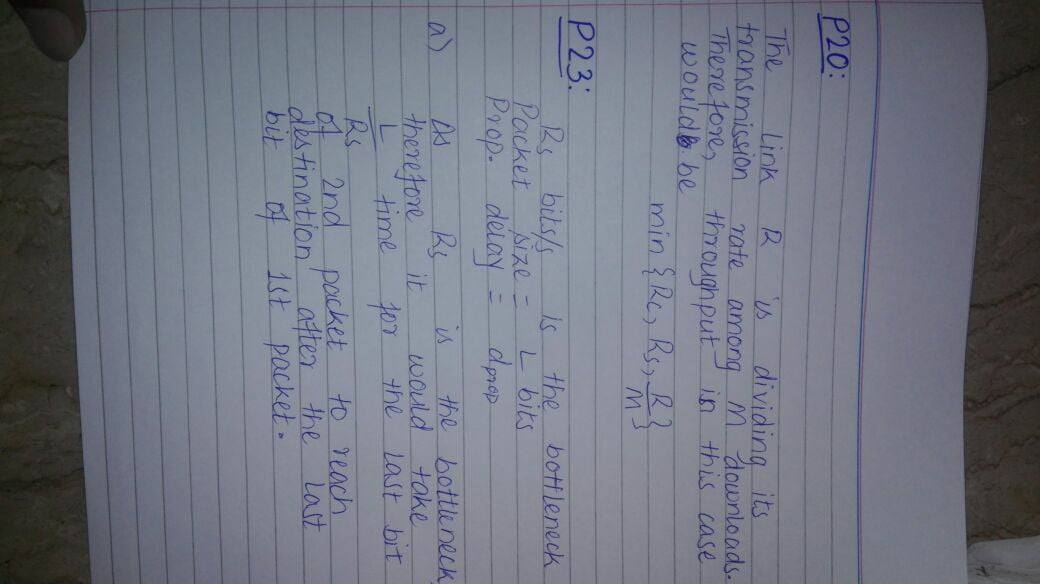 P20:
The Link R is dividing its
transmission rate among M downloads.
Therefore, throughput in this case
would be
min {Rc, Rs, R/M}
P23:
Rs bits/s is the bottleneck
Packet size = L bits
Prop. delay = dprop
a) As Rs is the bottleneck,
therefore it would take
L/Rs time for the last bit
of 2nd packet to reach
destination after the last
bit of 1st packet.